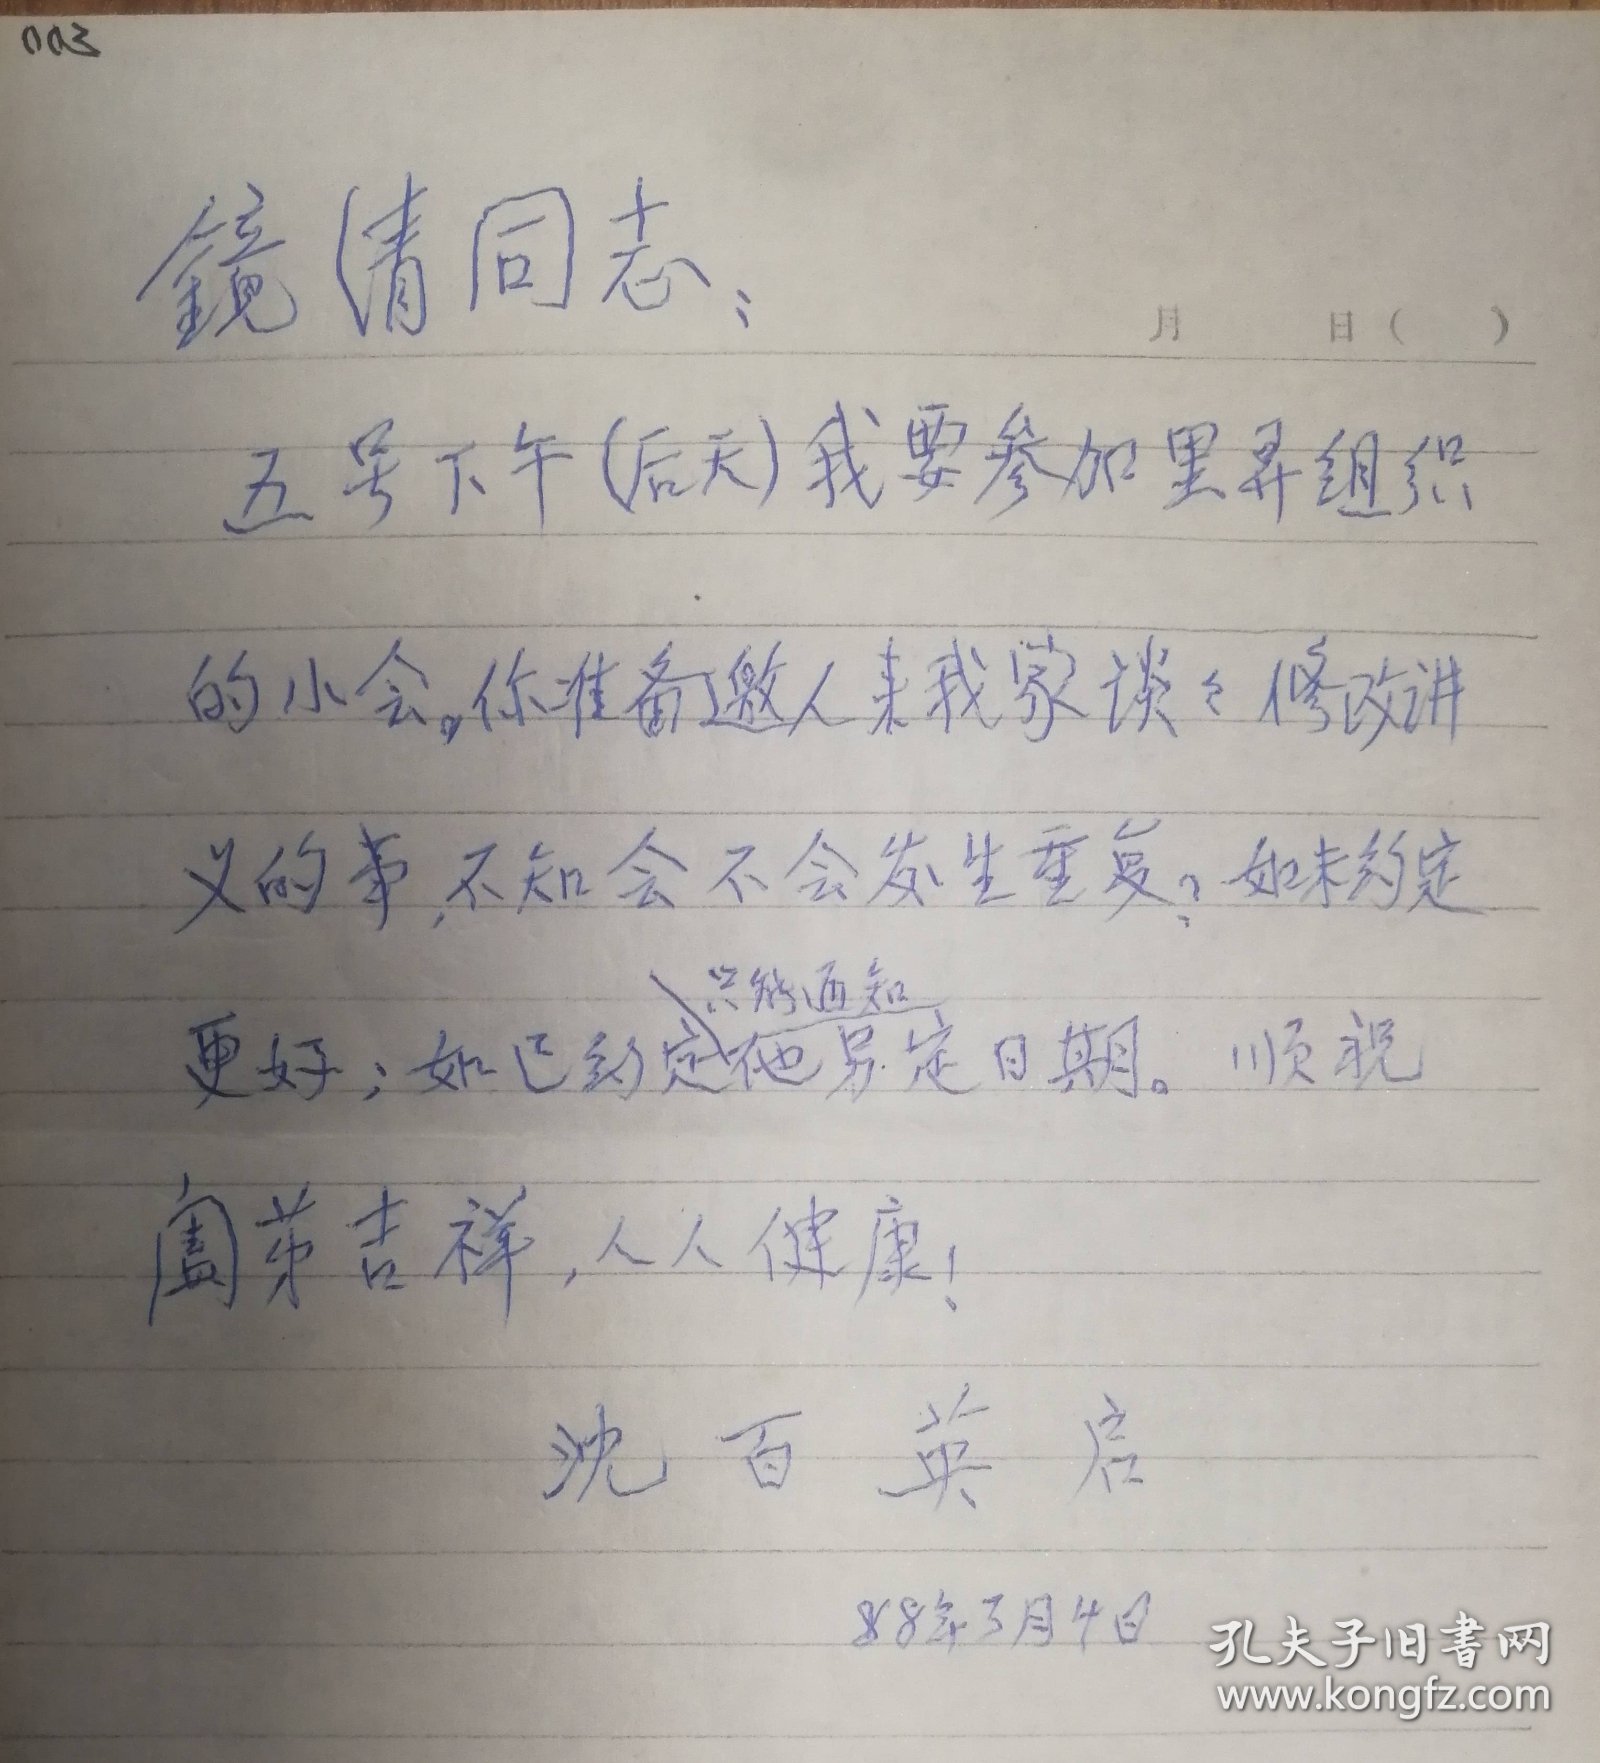 003
鏡清同志：
月 日( )
五号下午(后天)我要参加里弄组织
的小会。你准备邀人来我家谈々修改讲
义的事,不知会不会发生重复？如未约定
更好；如已约定只能通知他另定日期。顺祝
阖第吉祥,人人健康！
沈百英启
88年3月4日
孔夫子旧书网
www.kongfz.com